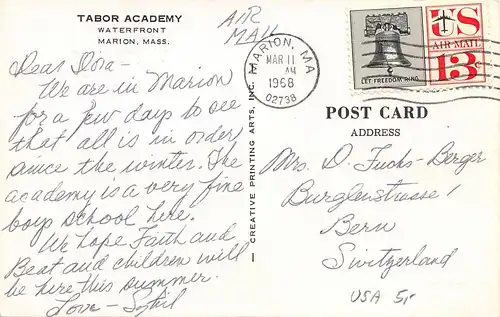 TABOR ACADEMY
WATERFRONT
MARION, MASS.
AIR
MAIL
MARION, MA
MAR 11
AM
1968
02738
LET FREEDOM RING
US
AIR MAIL
13c
Dear Dora-
We are in Marion
for a few days to see
that all is in order
since the winter. The
academy is a very fine
boys school here.
We hope Faith and
Beat and children will
be here this summer.
Love - Sybil
CREATIVE PRINTING ARTS, INC.
POST CARD
ADDRESS
Mrs. D. Fuchs-Berger
Burglenstrasse 1
Bern
Switzerland
USA 5,-